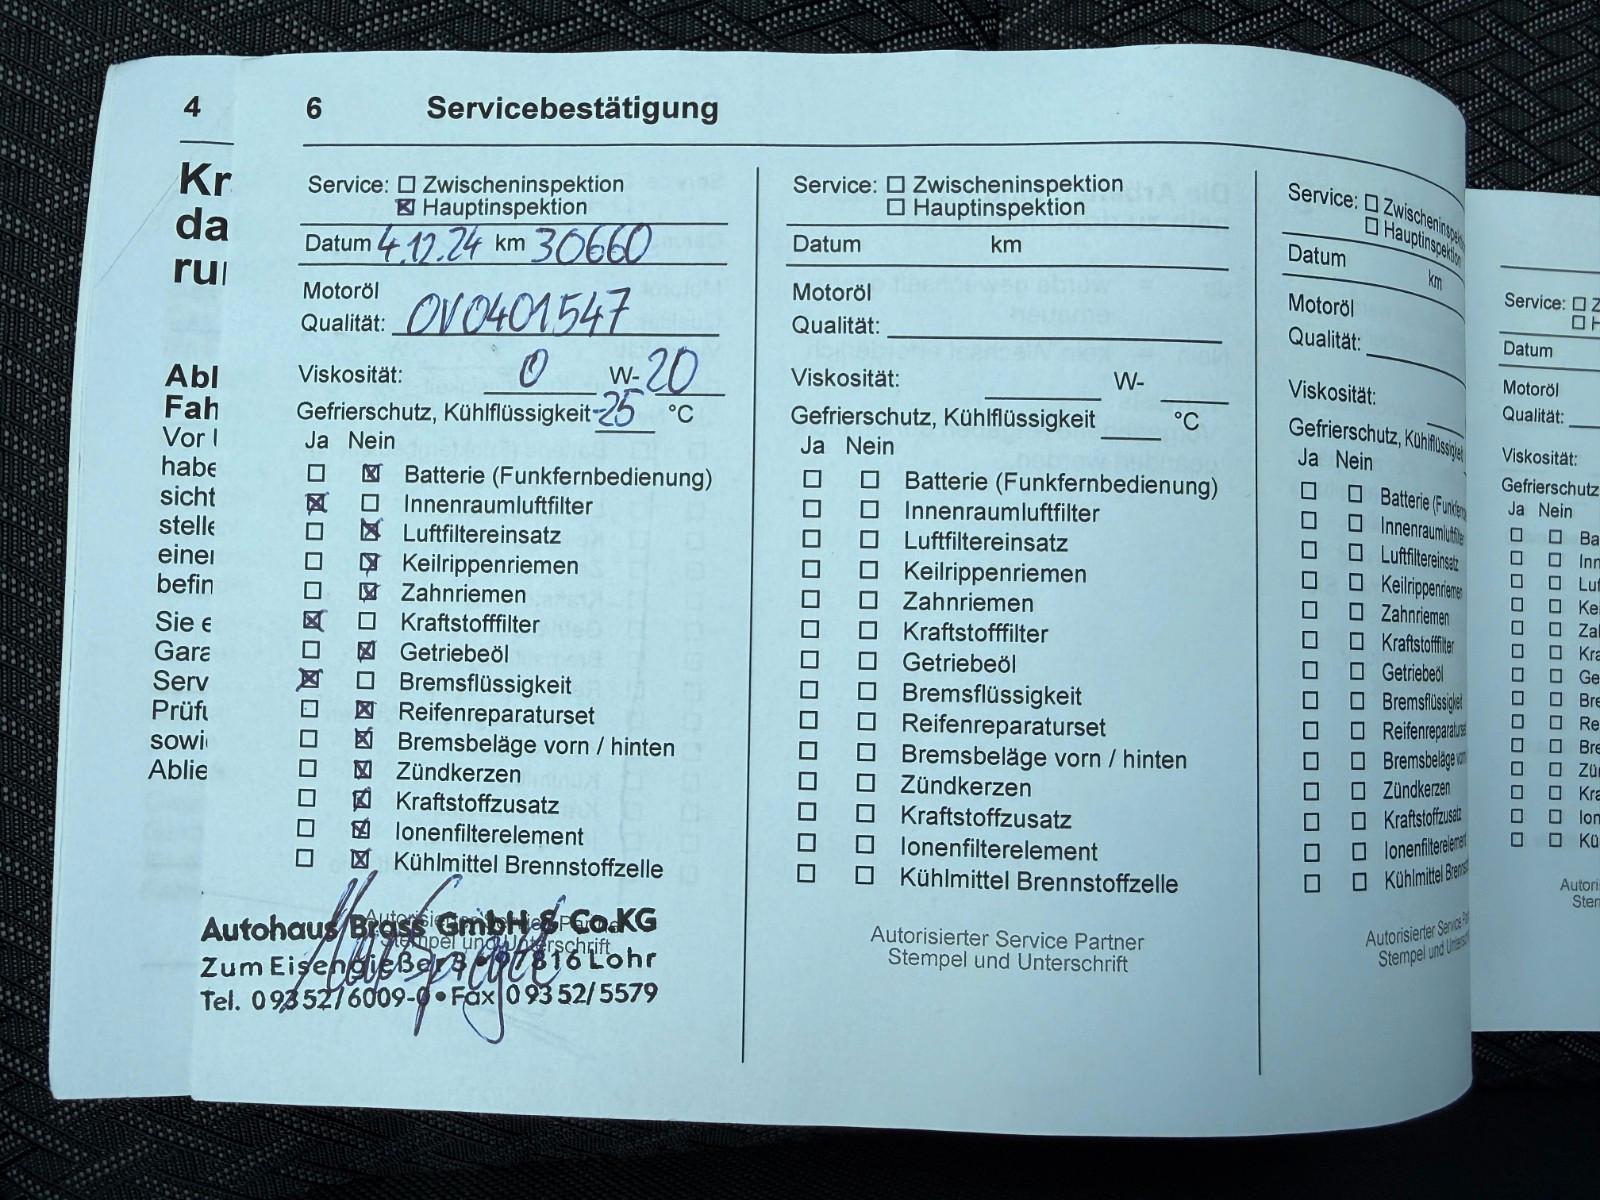 4
Kr
da
ru
Abl
Fah
Vor
habe
sicht
stelle
einer
befin
Sie e
Gara
Serv
Prüfu
sowi
Ablie
6 Servicebestätigung
Service: ☐ Zwischeninspektion
☒ Hauptinspektion
Datum 4.12.24 km 30660
Motoröl
Qualität: OV0401547
Viskosität: 0 W-20
Gefrierschutz, Kühlflüssigkeit -25 °C
Ja Nein
☐ ☒ Batterie (Funkfernbedienung)
☒ ☐ Innenraumluftfilter
☐ ☒ Luftfiltereinsatz
☐ ☒ Keilrippenriemen
☐ ☒ Zahnriemen
☒ ☐ Kraftstofffilter
☐ ☒ Getriebeöl
☒ ☐ Bremsflüssigkeit
☐ ☒ Reifenreparaturset
☐ ☒ Bremsbeläge vorn / hinten
☐ ☒ Zündkerzen
☐ ☒ Kraftstoffzusatz
☐ ☒ Ionenfilterelement
☐ ☒ Kühlmittel Brennstoffzelle
Autorisierter Service Partner
Stempel und Unterschrift
Autohaus Brass GmbH & Co.KG
Zum Eisengießer 3 • 97816 Lohr
Tel. 09352/6009-0 • Fax 09352/5579
Service: ☐ Zwischeninspektion
☐ Hauptinspektion
Datum km
Motoröl
Qualität:
Viskosität: W-
Gefrierschutz, Kühlflüssigkeit °C
Ja Nein
☐ ☐ Batterie (Funkfernbedienung)
☐ ☐ Innenraumluftfilter
☐ ☐ Luftfiltereinsatz
☐ ☐ Keilrippenriemen
☐ ☐ Zahnriemen
☐ ☐ Kraftstofffilter
☐ ☐ Getriebeöl
☐ ☐ Bremsflüssigkeit
☐ ☐ Reifenreparaturset
☐ ☐ Bremsbeläge vorn / hinten
☐ ☐ Zündkerzen
☐ ☐ Kraftstoffzusatz
☐ ☐ Ionenfilterelement
☐ ☐ Kühlmittel Brennstoffzelle
Autorisierter Service Partner
Stempel und Unterschrift
Service: ☐ Zwischeninspek
☐ Hauptinspektion
Datum km
Motoröl
Qualität:
Viskosität:
Gefrierschutz, Kühlflüssigkeit
Ja Nein
☐ ☐ Batterie (Funkfern
☐ ☐ Innenraumluftfilter
☐ ☐ Luftfiltereinsatz
☐ ☐ Keilrippenriemen
☐ ☐ Zahnriemen
☐ ☐ Kraftstofffilter
☐ ☐ Getriebeöl
☐ ☐ Bremsflüssigkeit
☐ ☐ Reifenreparaturse
☐ ☐ Bremsbeläge vorn
☐ ☐ Zündkerzen
☐ ☐ Kraftstoffzusatz
☐ ☐ Ionenfilterelement
☐ ☐ Kühlmittel Brenns
Autorisierter Service Pa
Stempel und Untersch
Service: ☐ Z
☐ H
Datum
Motoröl
Qualität:
Viskosität:
Gefrierschutz
Ja Nein
☐ ☐ Ba
☐ ☐ Inn
☐ ☐ Luf
☐ ☐ Ke
☐ ☐ Zal
☐ ☐ Kra
☐ ☐ Ge
☐ ☐ Bre
☐ ☐ Re
☐ ☐ Bre
☐ ☐ Zü
☐ ☐ Kra
☐ ☐ Ion
☐ ☐ Kü
Autori
Sten